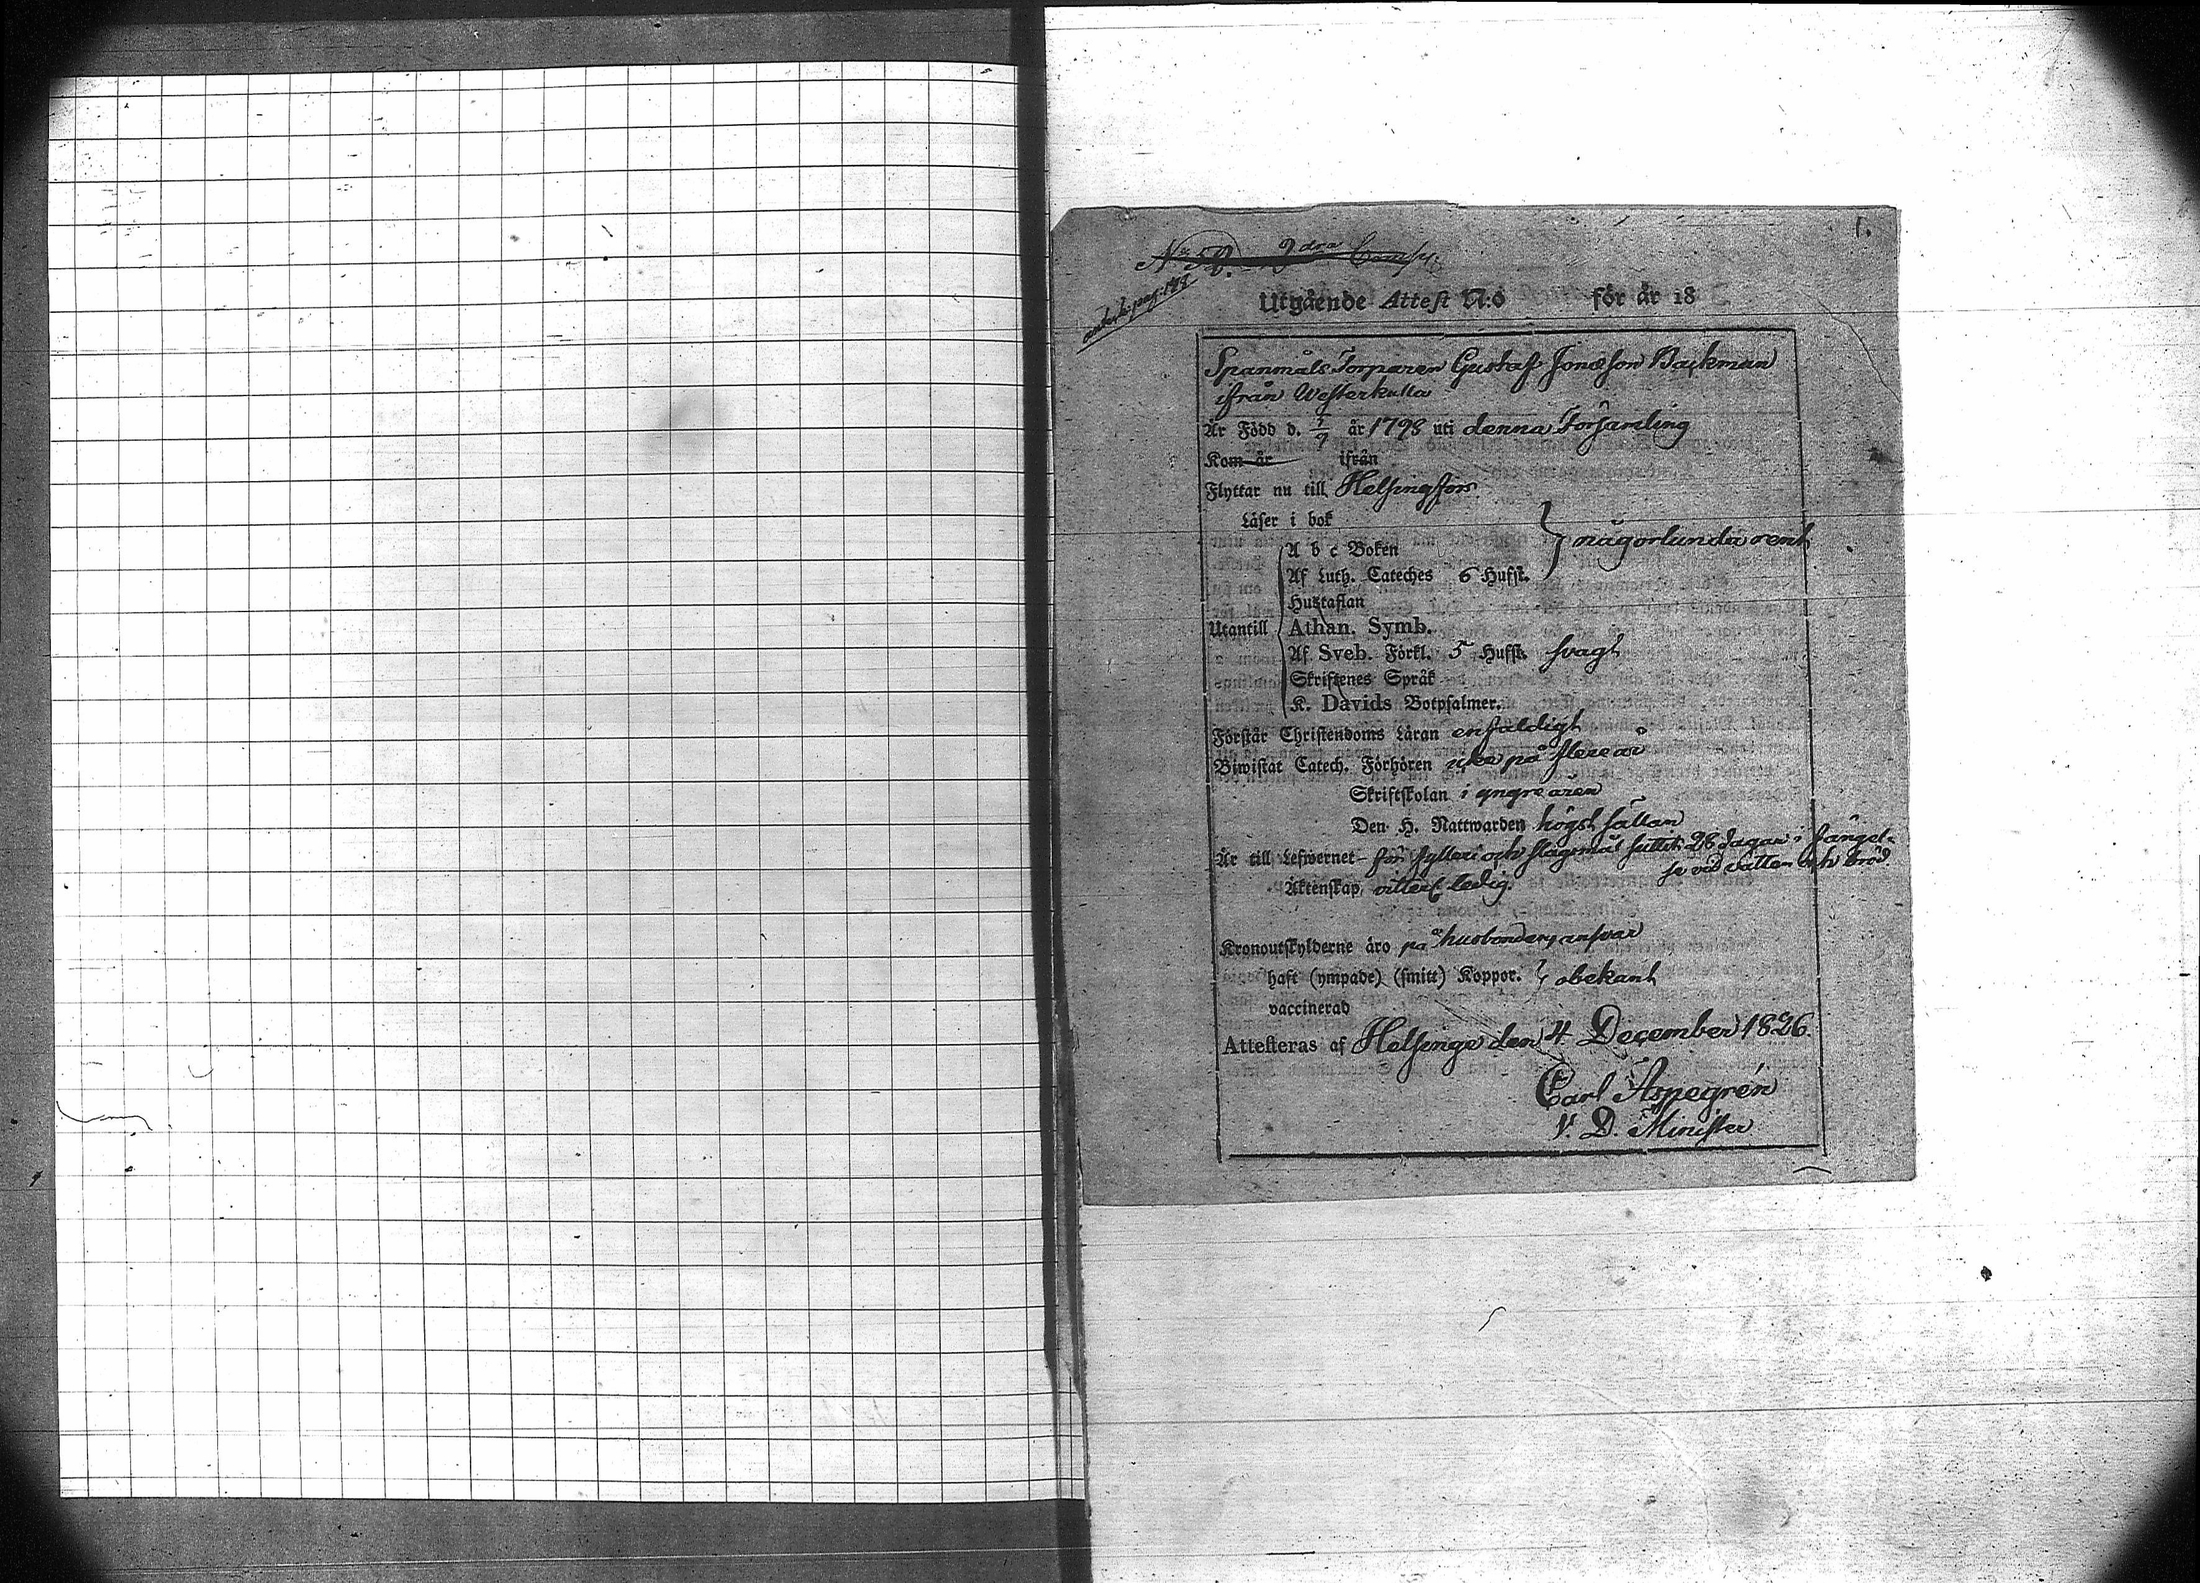 1.
No 52. 2dra Comp.
Utgående Attest N:o för år 18
Spanmåls Torparen Gustaf Jonæson Backman
ifrån Westerkulla
Är Född d. 7/9 år 1798 uti denna Församling
Kom år ifrån
Flyttar nu till Helsingfors
Läser i bok
någorlunda rent
A b c Boken
Af Luth. Cateches 6 Hufst.
Hustaflan
Utantill Athan. Symb.
Af Sveb. Förkl. 5 Hufst. svagt
Skriftenes Språk
K. Davids Botpsalmer.
Förstår Christendoms Läran enfaldigt
Biwistat Catech. Förhören icke på flere år
Skriftskolan i yngre åren
Den H. Nattwarden högst sällan
Är till Lefwernet för fylleri och slagsmål suttit 28 dagar i fängel-
se vid vatten och bröd
Äktenskap, villerl. ledig.
Kronoutskylderne äro på husbondens ansvar
haft (ympade) (smitt) Koppor. obekant
vaccinerad
Attesteras af Helsinge den 4 December 1826.
Carl Aspegrén
V. D. Minister